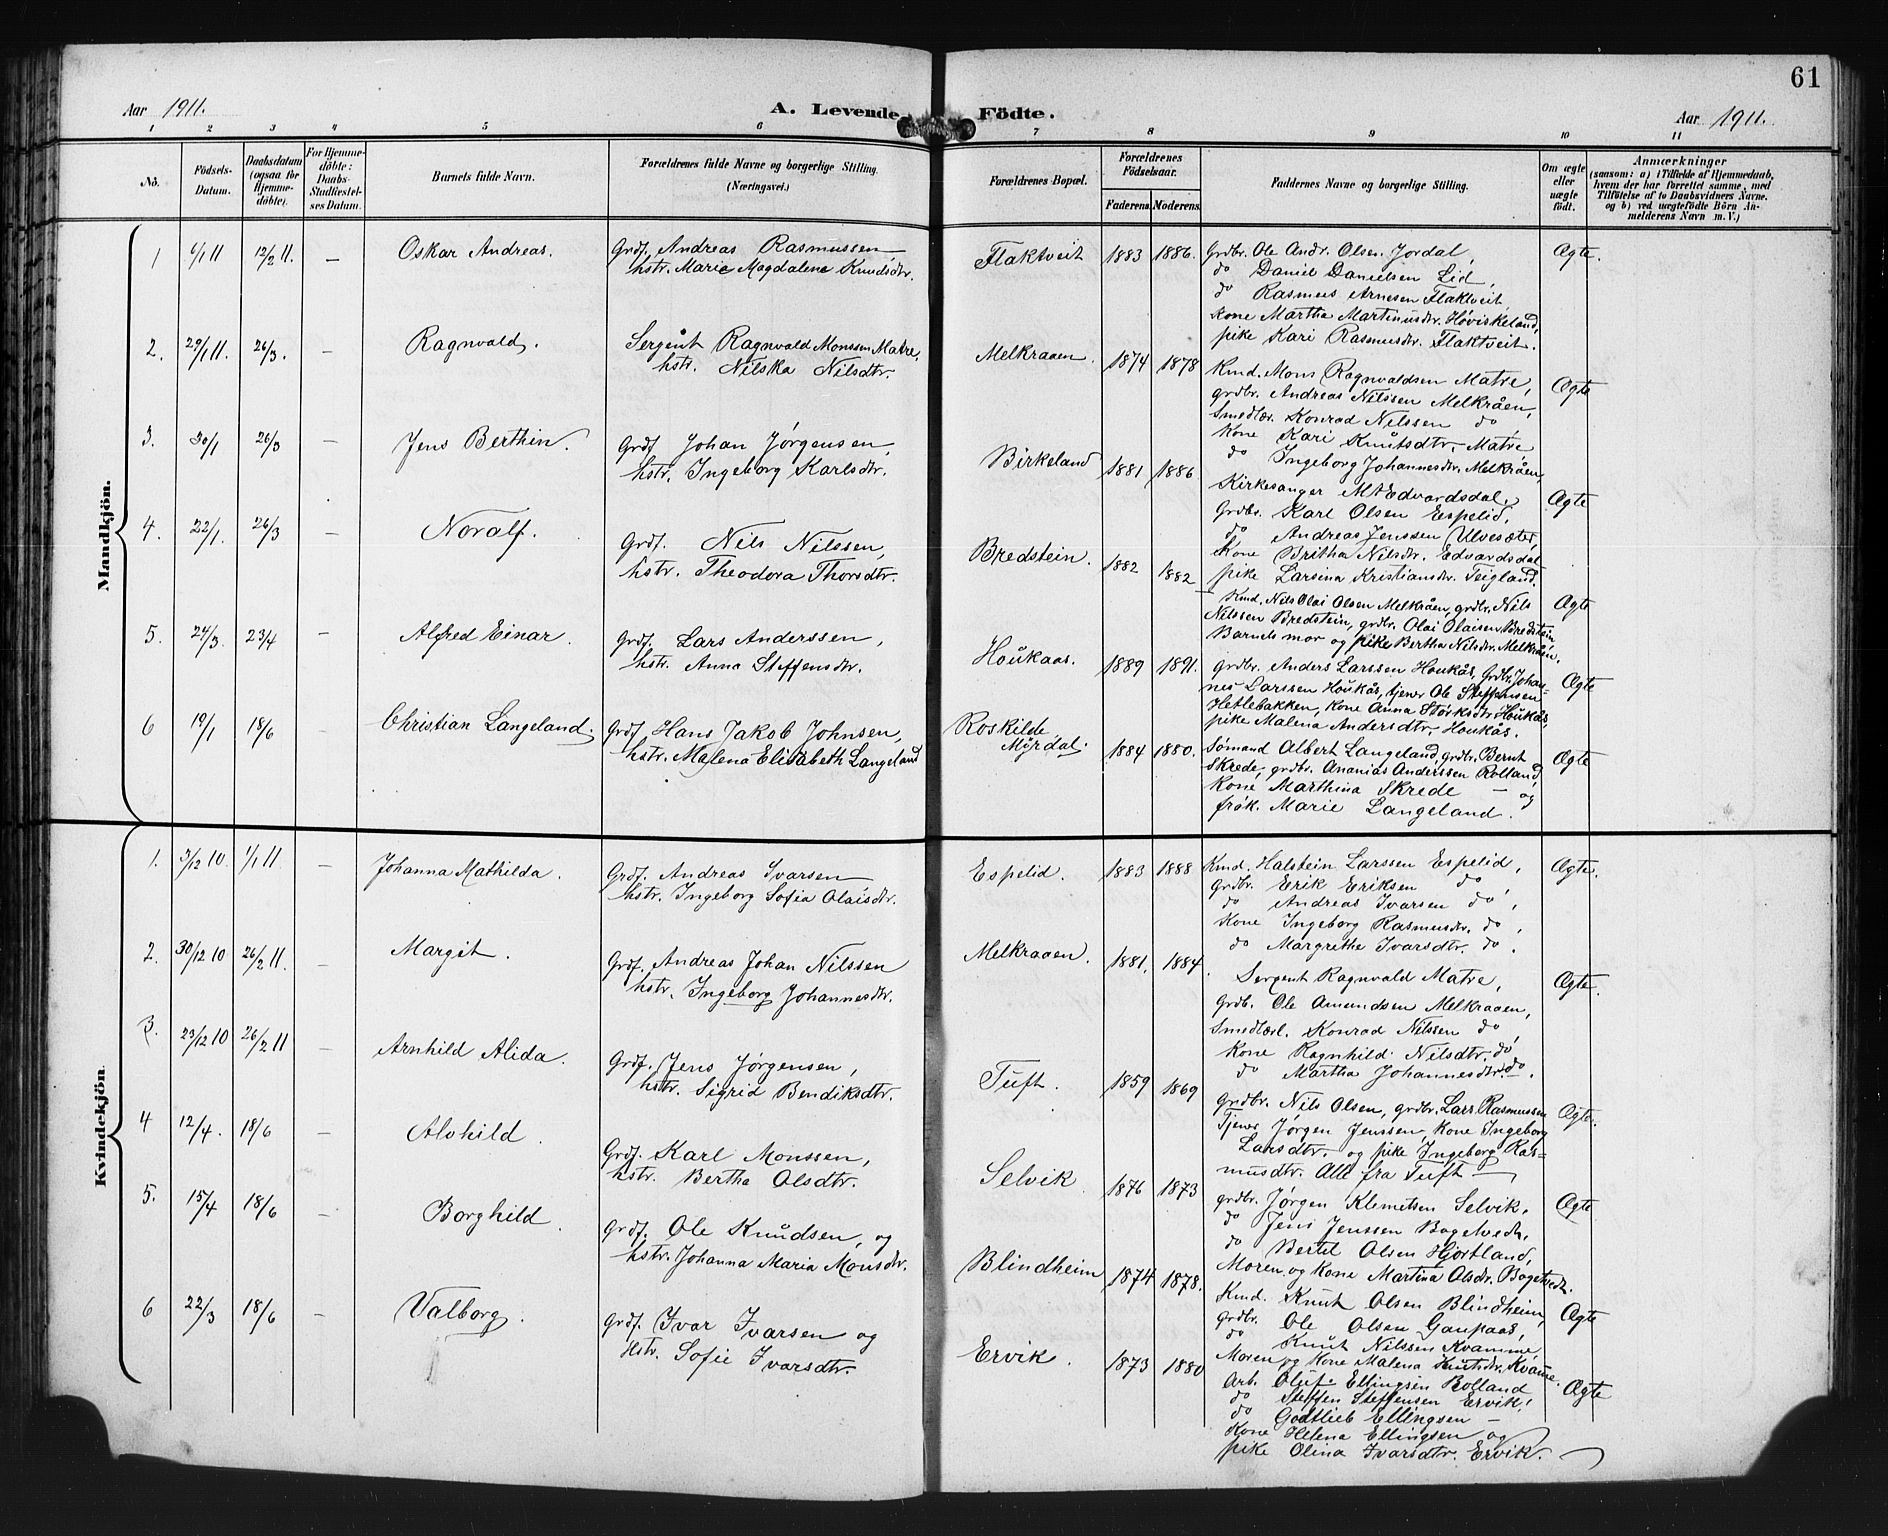 61
Aar 1911. A. Levende Födte. Aar 1911.
1 2 3 4 5 6 7 8 9 10 11
No. Födsels-Datum. Daabsdatum (ogsaa for Hjemme-döbte). For Hjemme-döbte: Daabs-Stadfæstel-ses Datum. Barnets fulde Navn. Forældrenes fulde Navne og borgerlige Stilling. (Næringsvei.) Forældrenes Bopæl. Forældrenes Födselsaar. Faderens. Moderens. Faddernes Navne og borgerlige Stilling. Om ægte eller uægte födt. Anmærkninger (saasom: a) i Tilfælde af Hjemmedaab, hvem der har forrettet samme, med Tilföielse af to Daabsvidners Navne. og b) ved uægtefödte Börn An-melderens Navn m. V.)
Mandkjön.
1 6/1 11 12/2 11. — Oskar Andreas. Grdf. Andreas Rasmussen
hstr. Marie Magdalena Knudsdtr.
Flaktveit 1883 1886. Grdbr. Ole Andr. Olsen Jordal,
do Daniel Danielsen Lid,
do Rasmus Arnesen Flaktveit
Kone Martha Martinusdtr. Høviskeland,
pike Kari Rasmusdtr. Flaktveit.
Ægte.
2. 29/1 11. 26/3. — Ragnvald. Sergànt Ragnvald Monssen Matre,
hstr. Nilska Nilsdtr.
Melkraaen. 1874 1878 Kmd. Mons Ragnvaldsen Matre,
grdbr. Andreas Nilssen Melkråen,
Smedlær. Konrad Nilssen do
Kone Kari Knutsdtr. Matre
do Ingeborg Johannesdtr. Melkråen,
Ægte
3. 30/1 26/3 — Jens Berthin. Grdf Johan Jørgensen,
hstr. Ingeborg Karlsdtr.
Birkeland 1881 1886 Kirkesanger M A Edvardsdal,
Grdbr. Karl Olsen Espelid,
do Andreas Jenssen Ulvesæter,
Kone Britha Nilsdtr. Edvardsdal
pike Larsina Kristiansdtr. Teigland.
Ægte
4. 22/1. 26/3 — Noralf. Grdf. Nils Nilssen,
hstr. Theodora Thorsdtr.
Bredstein. 1882 1882 Kmd. Nils Olai Olsen Melkråen, grdbr. Nils
Nilssen Bredstein, grdbr. Olai Olaisen Bredstein
Barnets mor og pike Bertha Nilsdtr. Melkråen.
Ægte
5. 24/3. 23/4 — Alfred Einar. Grdf. Lars Anderssen,
hstr. Anna Steffensdtr.
Houkaas. 1889 1891. grdbr. Anders Larssen Houkås, Grdbr. Johan-
nes Larssen Houkås, tjener Ole Steffensen
Hetlebakken, Kone Anna Størksdtr. Houkås,
pike Malena Andersdtr. Houkås.
Ægte
6 19/1 18/6 — Christian Langeland. Grdf Hans Jakob Johnsen,
hstr. Malena Elisabeth Langeland
Roskilde
Myrdal. 1884 1880. Sømand Albert Langeland, grdbr. Bernt
Skrede, grdbr. Ananias Anderssen Rolland,
Kone Marthina Skrede — og
frøk. Marie Langeland.
Ægte
Kvindekjön
1. 3/12 10. 1/1 11 — Johanna Mathilda. Grdf. Andreas Ivarsen
hstr. Ingeborg Sofia Olaisdtr.
Espelid. 1883 1888 Kmd. Halstein Larssen Espelid,
grdbr. Erik Eriksen do,
do Andreas Ivarsen do,
Kone Ingeborg Rasmusdtr. do,
do Margrethe Ivarsdtr. do.
Ægte.
2. 30/12 10 26/2 11. — Margit. Grdf. Andreas Johan Nilssen
hstr. Ingeborg Johannesdtr.
Melkraaen. 1881. 1884. Sergent Ragnvald Matre,
Grdb. Ole Amundsen Melkraaen,
Smedlærl. Konrad Nilssen do,
Kone Ragnhild Nilsdtr. do,
do Martha Johannesdtr. do.
Ægte.
3. 23/12 10 26/2 11 — Arnhild Alida. Grdf. Jens Jørgensen,
hstr. Sigrid Bendiksdtr.
Tuft. 1859 1869 Grdbr. Nils Olsen, grdbr. Lars Rasmussen
Tjener Jørgen Jenssen, Kone Ingeborg
Larsdtr. og pike Ingeborg Ras-
musdtr. Alle fra Tuft —
Ægte.
4 12/4. 18/6 — Alvhild. Grdf. Karl Monssen,
hstr. Bertha Olsdtr.
Selvik. 1876 1873 grdbr. Jørgen Klemetsen Selvik,
do Jens Jenssen Bogetvedt,
do Bertel Olsen Hjortland,
Moren og Kone Martina Olsdr. Bogetvedt.
Ægte
5. 15/4 18/6 — Borghild. Grdf. Ole Knudsen, og
hstr. Johanna Maria Monsdtr.
Blindheim 1874 1878. Kmd. Knut Olsen Blindheim,
grdbr. Ole Olsen Gaupaas,
do Knut Nilssen Kvamme,
Moren og Kone Malena Knutsdtr. Kvamme.
Ægte
6 22/3 18/6 — Valborg. Grdf. Ivar Ivarsen og
Hstr. Sofie Ivarsdtr.
Ervik. 1873 1880 Arb. Oluf Ellingsen Rolland
do Steffen Steffensen Ervik,
do Godtlieb Ellingsen —
Kone Helena Ellingsen og
pike Olina Ivarsdtr. Ervik.
Ægte